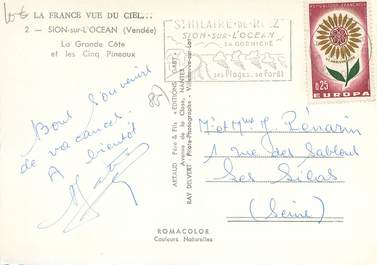 LA FRANCE VUE DU CIEL...
2 - SION-sur-L'OCEAN (Vendée)
La Grande Côte
et les Cinq Pineaux
SION-SUR-L'OCEAN
SA CORNICHE
SES Plages, sa Forêt
REPUBLIQUE FRANCAISE
0,25
EUROPA
Bons Souvenirs
de vacances.
A bientôt
ARTAUD Père & Fils - EDITIONS "GABY"
Avenue de la Close, NANTES
RAY DELVERT - Pilote-Photographe - Villeneuve-sur-Lot
Mr et Mme J. Pénarin
1 rue des Sablons
Les Lilas
(Seine)
ROMACOLOR
Couleurs Naturelles